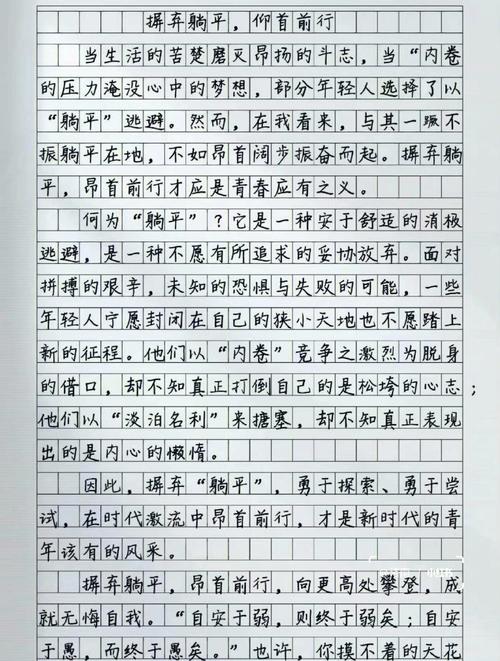 摒弃躺平，仰首前行
当生活的苦楚磨灭昂扬的斗志，当“内卷
的压力淹没心中的梦想，部分年轻人选择了以
“躺平”逃避。然而，在我看来，与其一蹶不
振躺平在地，不如昂首阔步振奋而起。摒弃躺
平，昂首前行才应是青春应有之义。
何为“躺平”？它是一种安于舒适的消极
逃避，是一种不愿有所追求的妥协放弃。面对
拼搏的艰辛，未知的恐惧与失败的可能，一些
年轻人宁愿封闭在自己的狭小天地也不愿踏上
新的征程。他们以“内卷”竞争之激烈为脱身
的借口，却不知真正打倒自己的是松垮的心志；
他们以“淡泊名利”来搪塞，却不知真正表现
出的是内心的懒惰。
因此，摒弃“躺平”，勇于探索、勇于尝
试，在时代激流中昂首前行，才是新时代的青
年该有的风采。
摒弃躺平，昂首前行，向更高处攀登，成
就无悔自我。“自安于弱，则终于弱矣；自安
于愚，而终于愚矣。”也许，你摸不着的天花